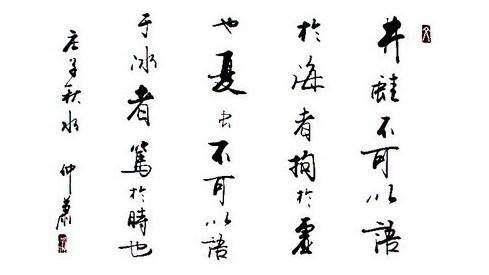 井蛙不可以語
於海者拘於虛
也夏虫不可以語
于冰者篤於時也
庄子秋水 仲